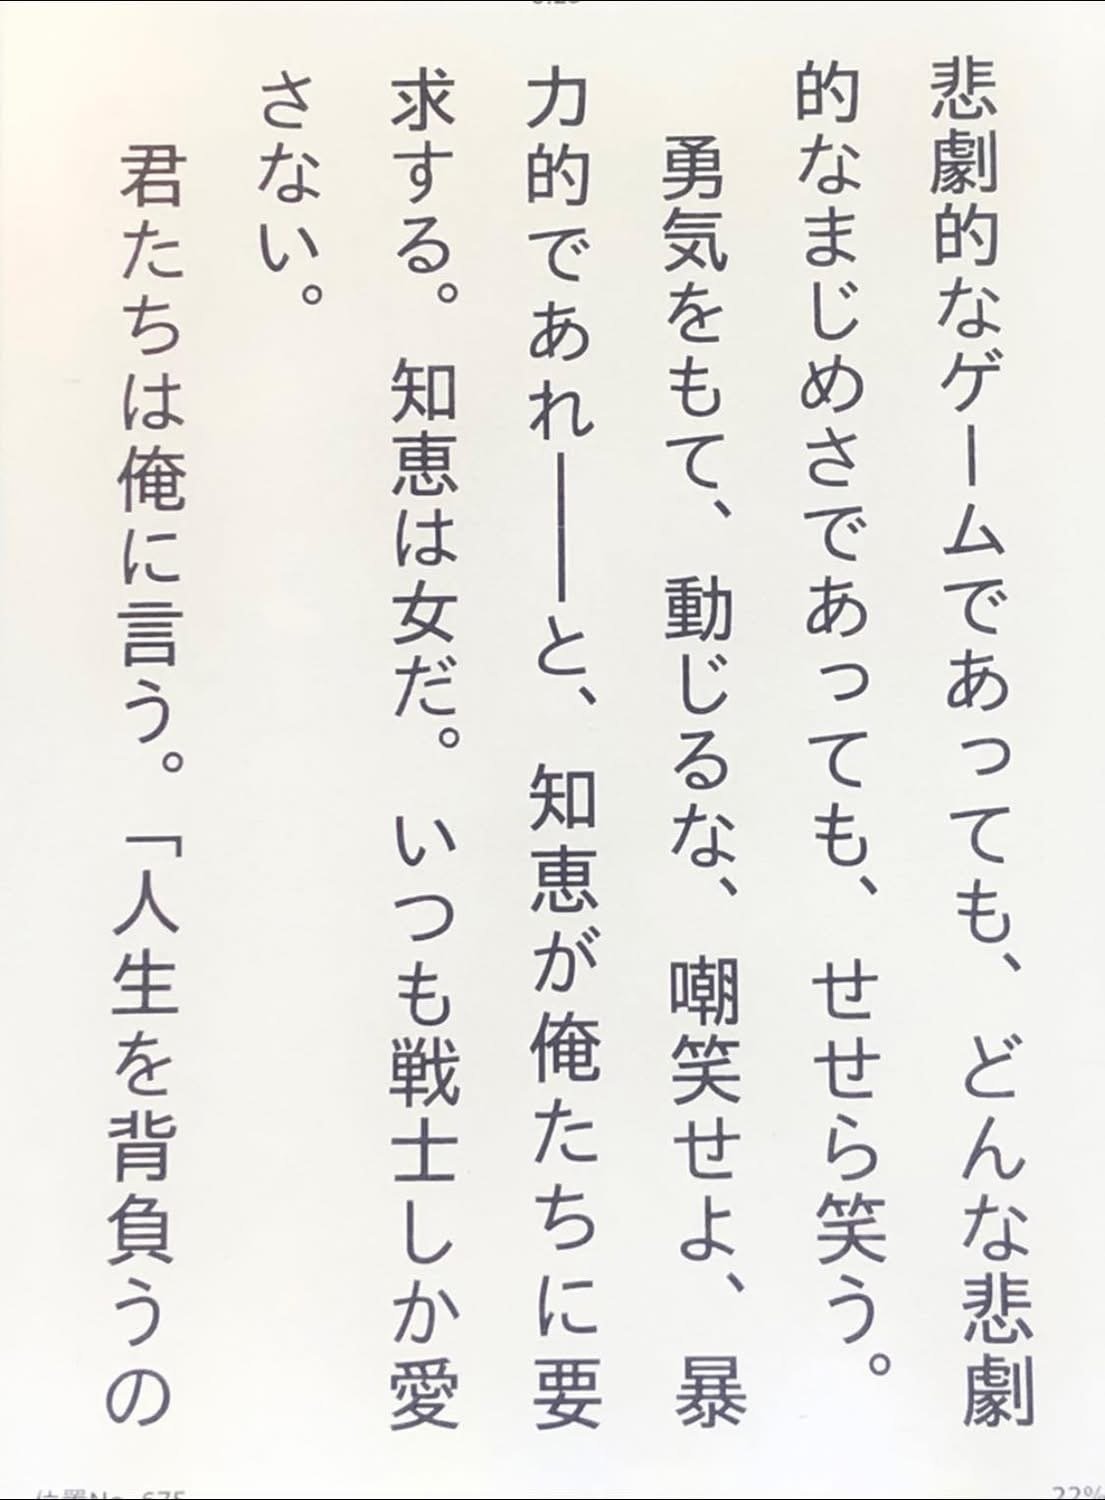 悲劇的なゲームであっても、どんな悲劇
的なまじめさであっても、せせら笑う。
勇気をもて、動じるな、嘲笑せよ、暴
力的であれ――と、知恵が俺たちに要
求する。知恵は女だ。いつも戦士しか愛
さない。
君たちは俺に言う。「人生を背負うの
22%